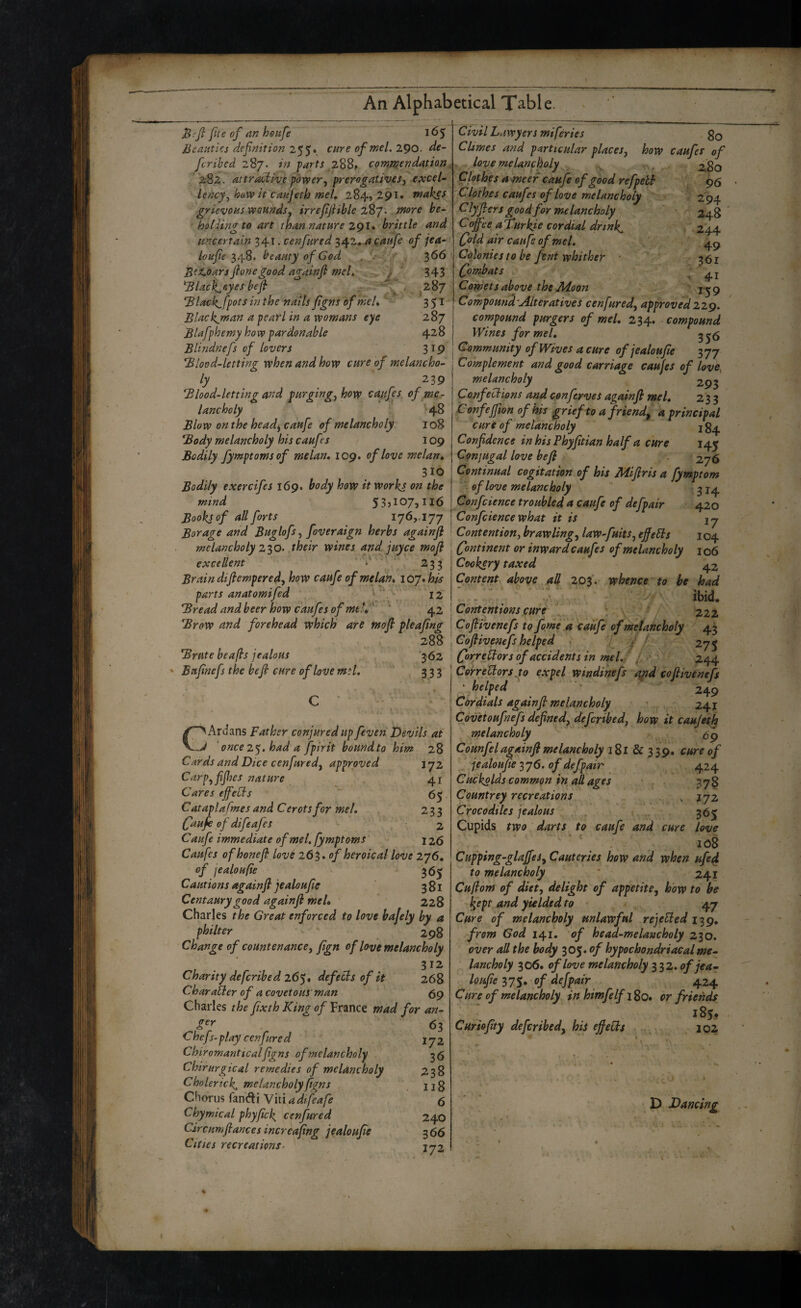 An Alphabetical Table.
Beſt ſite of an houſe 165
Beauties definition 255. cure of mel. 290. de-
ſcribed 287. in parts 288, commendation
282. attractive power, prerogatives, excel-
lency, how it cauſeth mel. 284, 291. makes
grievous wounds, irreſiſtible 287. more be-
holding to art than nature 291. brittle and
uncertain 341. cenſured 342. a cauſe of jea-
louſie 348. beauty of God 366
Bezoars ſtone good againſt mel. 343
Black eyes beſt 287
Black ſpots in the nails ſigns of mel. 351
Black man a pearl in a womans eye 287
Blaſphemy how pardonable 428
Blindneſs of lovers 319
Blood-letting when and how cure of melancho-
ly 239
Blood-letting and purging, how cauſes of me-
lancholy 48
Blow on the head, cauſe of melancholy 108
Body melancholy his cauſes 109
Bodily ſymptoms of melan. 109. of love melan.
310
Bodily exerciſes 169. body how it works on the
mind 53, 107, 116
Books of all ſorts 176, 177
Borage and Bugloſs, ſoveraign herbs againſt
melancholy 230. their wines and juyce moſt
excellent 233
Brain diſtempered, how cauſe of melan. 107. his
parts anatomiſed 12
Bread and beer how cauſes of mel. 42
Brow and forehead which are moſt pleaſing
288
Brute beaſts jealous 362
Buſineſs the beſt cure of love mel. 333
C
CArdans Father conjured up ſeven Devils at
once 25. had a ſpirit bound to him 28
Cards and Dice cenſured, approved 172
Carp, fiſhes nature 41
Cares effects 65
Cataplaſmes and Cerots for mel. 233
Cauſe of diſeaſes 2
Cauſe immediate of mel. ſymptoms 126
Cauſes of honeſt love 263. of heroical love 276.
of jealouſie 365
Cautions againſt jealouſie 381
Centaury good againſt mel. 228
Charles the Great enforced to love baſely by a
philter 298
Change of countenance, ſign of love melancholy
312
Charity deſcribed 265. defects of it 268
Character of a covetous man 69
Charles the ſixth King of France mad for an-
ger 63
Cheſs-play cenſured 172
Chiromantical ſigns of melancholy 36
Chirurgical remedies of melancholy 238
Cholerick melancholy ſigns 118
Chorus ſancti Viti a diſeaſe 6
Chymical phyſick cenſured 240
Circumſtances increaſing jealouſie 366
Cities recreations 172
Civil Lawyers miſeries 80
Climes and particular places, how cauſes of
love melancholy 280
Clothes a meer cauſe of good reſpect 96
Clothes cauſes of love melancholy 294
Clyſters good for melancholy 248
Coffee a Turkie cordial drink 244
Cold air cauſe of mel. 49
Colonies to be ſent whither 361
Combats 41
Comets above the Moon 159
Compound Alteratives cenſured, approved 229.
compound purgers of mel. 234. compound
Wines for mel. 356
Community of Wives a cure of jealouſie 377
Complement and good carriage cauſes of love
melancholy 293
Confections and conſerves againſt mel. 233
Confeſſion of his grief to a friend, a principal
cure of melancholy 184
Confidence in his Phyſitian half a cure 145
Conjugal love beſt 276
Continual cogitation of his Miſtris a ſymptom
of love melancholy 314
Conſcience troubled a cauſe of deſpair 420
Conſcience what it is 17
Contention, brawling, law-ſuits, effects 104
Continent or inward cauſes of melancholy 106
Cookery taxed 42
Content above all 203. whence to be had
ibid.
Contentions cure 222
Coſtiveneſs to ſome a cauſe of melancholy 43
Coſtiveneſs helped 275
Correctors of accidents in mel. 244
Correctors to expel windineſs and coſtiveneſs
helped 249
Cordials againſt melancholy 241
Covetouſneſs defined, deſcribed, how it cauſeth
melancholy 69
Counſel againſt melancholy 181 & 339. cure of
jealouſie 376. of deſpair 424
Cuckolds common in all ages 378
Countrey recreations 172
Crocodiles jealous 365
Cupids two darts to cauſe and cure love
108
Cupping-glaſſes, Cauteries how and when uſed
to melancholy 241
Cuſtom of diet, delight of appetite, how to be
kept and yielded to 47
Cure of melancholy unlawful rejected 139.
from God 141. of head-melancholy 230.
over all the body 305. of hypochondriacal me-
lancholy 306. of love melancholy 332. of jea-
louſie 375. of deſpair 424
Cure of melancholy in himſelf 180. or friends
185.
Curioſity deſcribed, his effects 102
D Dancing